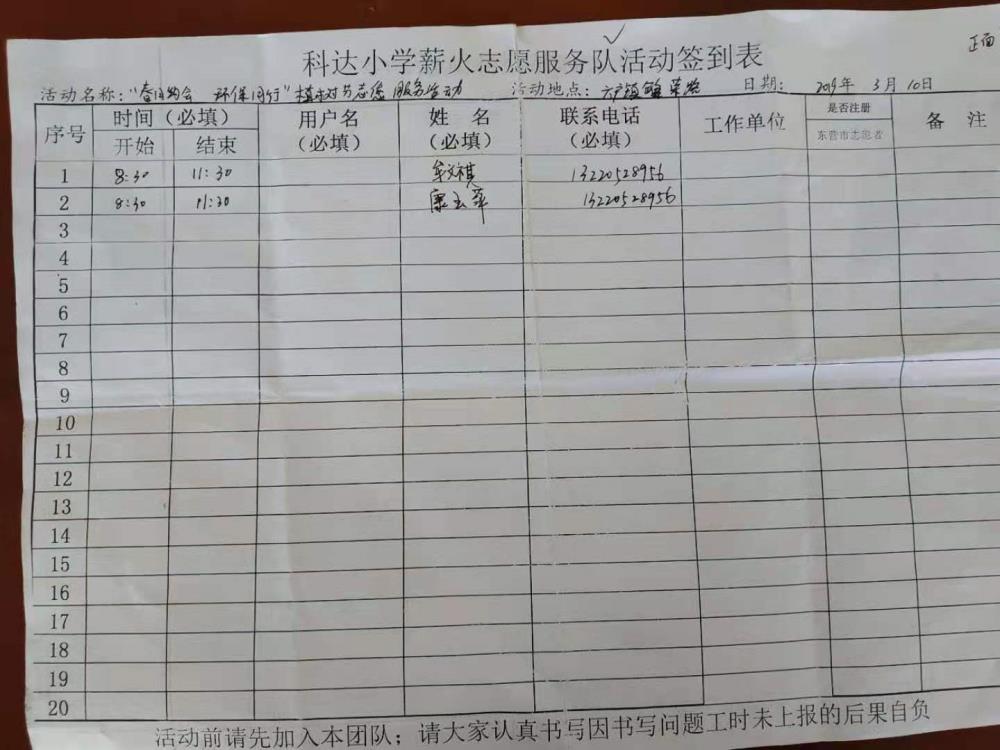 正面
科达小学薪火志愿服务队活动签到表
活动名称："春日约会 环保同行"植树志愿服务活动 活动地点：六户镇 日期： 2019年 3月 10日
序号 时间（必填） 用户名（必填） 姓 名（必填） 联系电话（必填） 工作单位 是否注册东营市志愿者 备 注
开始 结束
1 8:30 11:30 祺 13220528956
2 8:30 11:30 康玉萍 13220528956
3
4
5
6
7
8
9
10
11
12
13
14
15
16
17
18
19
20
活动前请先加入本团队；请大家认真书写因书写问题工时未上报的后果自负